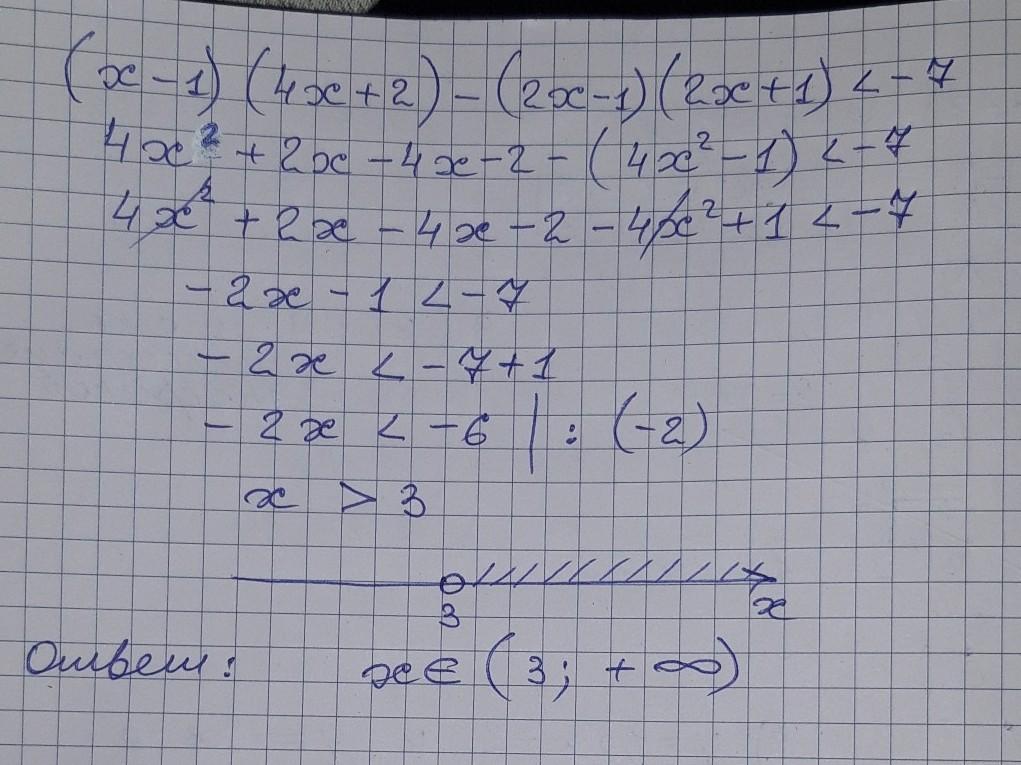 (x-1)(4x+2)-(2x-1)(2x+1)<-7
4x²+2x-4x-2-(4x²-1)<-7
4x²+2x-4x-2-4x²+1<-7
-2x-1<-7
-2x<-7+1
-2x<-6 | : (-2)
x > 3
3 x
Ответ: x∈(3; +∞)